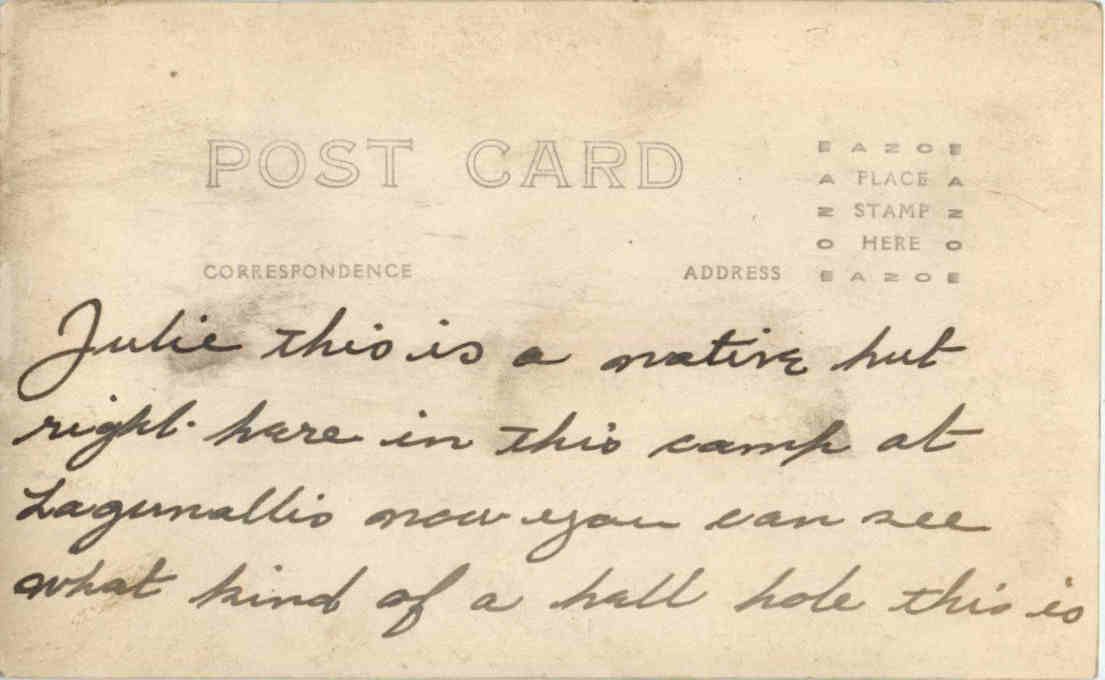 POST CARD
CORRESPONDENCE
ADDRESS
E A Z O E
A PLACE A
Z STAMP Z
O HERE O
E A Z O E
Julie this is a native hut
right here in this camp at
Lagunallis now you can see
what kind of a hell hole this is